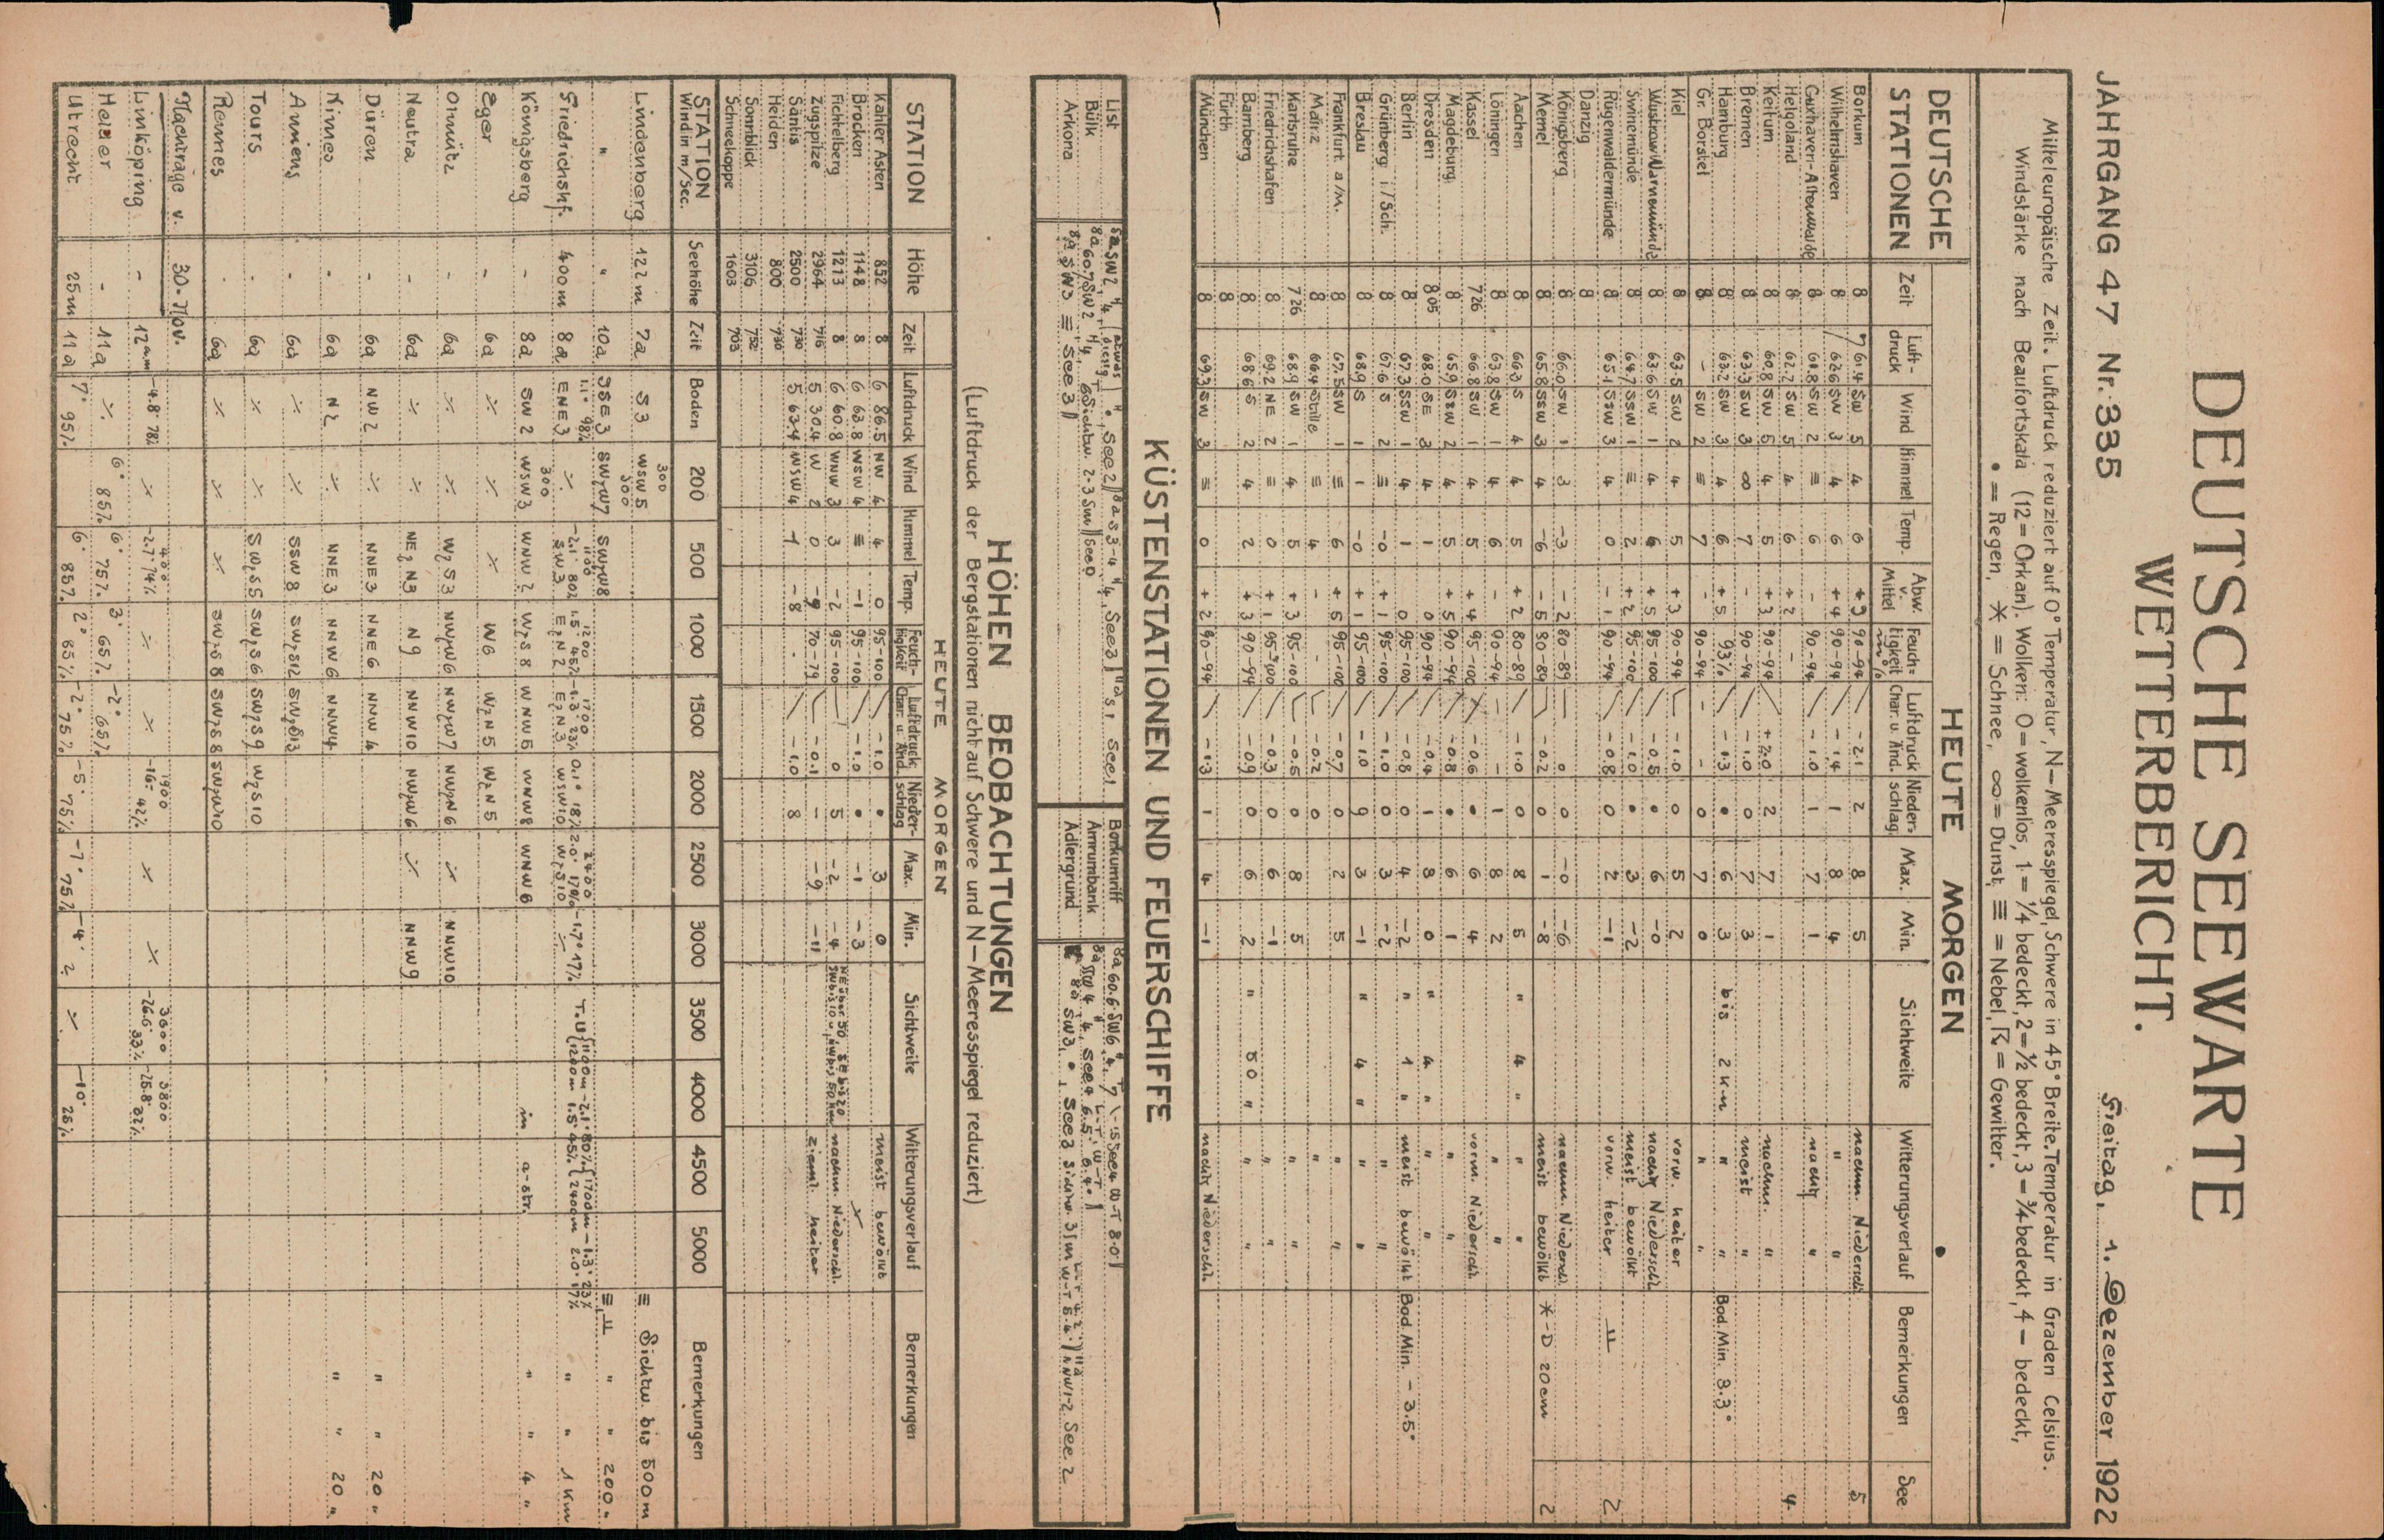 DEUTSCHE SEEWARTE
WETTERBERICHT.
JAHRGANG 47 Nr. 335 Freitag, 1. Dezember 1922
Mitteleuropäische Zeit. Luftdruck reduziert auf 0° Temperatur, N–Meeresspiegel, Schwere in 45° Breite. Temperatur in Graden Celsius.
Windstärke nach Beaufortskala (12 = Orkan). Wolken: 0 = wolkenlos, 1 = 1/4 bedeckt, 2 = 1/2 bedeckt, 3 = 3/4 bedeckt, 4 – bedeckt,
• = Regen, * = Schnee, ∞ = Dunst, ≡ = Nebel, ☈ = Gewitter.
DEUTSCHE STATIONEN HEUTE MORGEN
Zeit Luftdruck Wind Himmel Temp. Abw. v. Mittel Feuchtigkeit in % Luftdruck Char. u. Änd. Niederschlag Max. Min. Sichtweite Witterungsverlauf Bemerkungen See
Borkum 8 761.4 SW 5 4 6 +3 90-94 -2.1 2 8 5 nachm. Niederschl. 5
Wilhelmshaven 8 62.6 SW 3 4 6 +4 90-94 -1.4 1 8 4 " "
Cuxhaven- 8 61.8 SW 2 ≡ 6 - 90-94 -1.0 1 7 1 nachts "
Helgoland 8 62.2 SW 5 4 6 +2 - 4
Keitum 8 60.8 SW 5 4 5 +3 90-94 +2.0 2 7 1 nachm. "
Bremen 8 63.3 SW 3 ∞ 7 - 90-94 -1.0 0 7 3 meist "
Hamburg 8 63.2 SW 3 4 6 +5 93% -1.3 • 6 3 bis 2 Km " " Bod. Min. 3.3°
Gr. Borstel 8 - SW 2 ≡ 7 - - - 0 7 0 " "
Kiel 8 63.5 SW 2 4 5 +3 90-94 -1.0 0 5 2 vorw. heiter
Wustrow Warnemünde 8 63.6 SW 1 4 6 +5 95-100 -0.5 • 6 -0 nachts Niederschl.
Swinemünde 8 64.7 SSW 1 ≡ 2 +2 95-100 -1.0 • 3 -2 meist bewölkt
Rügenwaldermünde 8 65.1 SSW 3 4 0 -1 90-94 -0.8 0 2 -1 vorw. heiter 2
Danzig 8
Königsberg 8 66.0 SW 1 3 -3 -2 80-89 0 0 -0 -6 nachm. Niederschl.
Memel 8 65.8 SSW 3 4 -6 -5 80-89 -0.2 0 1 -8 meist bewölkt * -D 20cm 2
Aachen 8 66.5 S 4 4 5 +2 80-89 -1.0 0 8 5 " 4 " " "
Löningen 8 63.8 SW 1 4 6 - 90-94 - 1 8 2 " "
Kassel 7 26 66.8 SW 1 4 5 +4 95-100 -0.6 • 6 4 vorm. Niederschl.
Magdeburg 8 65.9 SSW 2 4 5 +5 90-94 -0.8 • 6 1 " "
Dresden 8 05 68.0 SE 3 4 1 0 90-94 -0.4 1 8 0 " 4 " " "
Berlin 8 67.3 SSW 1 4 1 0 95-100 -0.8 0 4 -2 " 1 " meist bewölkt Bod. Min. -3.5°
Grünberg i/Sch. 8 67.6 S 2 ≡ -0 +1 95-100 -1.0 0 3 -2 " "
Breslau 8 68.9 S 1 1 -0 +1 95-100 -1.0 9 3 -1 " 4 " " "
Frankfurt a/m. 8 67.5 SW 1 ≡ 6 +5 95-100 -0.7 0 2 5 " "
Mainz 8 66.4 Stille ≡ 4 - - -0.2 0 "
Karlsruhe 7 26 68.9 SW 1 4 5 +3 95-100 -0.5 0 8 5 " "
Friedrichshafen 8 69.2 NE 2 ≡ 0 +1 95-100 -0.3 0 6 -1 " "
Bamberg 8 68.6 S 2 4 2 +3 90-94 -0.9 0 6 2 " 50 " " "
Fürth 8
München 8 69.3 SW 3 ≡ 0 +2 90-94 -1.3 1 4 -1 nachts Niederschl.
KÜSTENSTATIONEN UND FEUERSCHIFFE
List
Bülk
Arkona
Borkumriff
Amrumbank
Adlergrund
HÖHEN BEOBACHTUNGEN
(Luftdruck der Bergstationen nicht auf Schwere und N–Meeresspiegel reduziert)
STATION Höhe HEUTE MORGEN
Zeit Luftdruck Wind Himmel Temp. Feuchtigkeit Luftdruck Char. u. Änd. Niederschlag Max. Min. Sichtweite Witterungsverlauf Bemerkungen
Kahler Asten 852 8 6 86.5 NW 4 4 0 95-100 -1.0 • 3 0 meist bewölkt
Brocken 1148 8 6 63.8 WSW 4 ≡ -1 95-100 -1.0 • -1 -3
Fichtelberg 1213 8 6 60.8 WNW 3 3 -2 95-100 0 5 -2 -4 nachm. Niederschl.
Zugspitze 2964 7 16 5 30.4 W 2 0 -9 70-79 -0.1 - -9 -11 zieml. heiter
Säntis 2500 7 30 5 63.4 WSW 4 -1 -8 - -1.0 8
Heiden 800 7 30
Sonnblick 3106 7 52
Schneekoppe 1603 7 03
STATION Wind in m/Sec. Seehöhe Zeit Boden 200 500 1000 1500 2000 2500 3000 3500 4000 4500 5000 Bemerkungen
Lindenberg 122 m 7a S 3 300 WSW 5 ≡ Sichtw. bis 500 m
" " 10a SSE 3 500 SWzW7 SWzW8 " " 200 "
Friedrichshf. 400 m 8a ENE 3 SW 3 EzN 2 EzN 3 WSW 10 WzS 10 " " 1 Km
Königsberg - 8a SW 2 300 WSW 3 WNW 2 WzS 8 WNW 5 WNW 8 WNW 6 in a-str. " " 4 "
Eger - 6a W 6 WzN 5 WzN 5
Olmütz - 6a WzS 3 NWzW6 NWzW7 NWzN 6 NNW 10
Neutra - 6a NEzN3 N 9 NNW 10 NWzW 6 NNW 9
Düren - 6a NW 2 NNE 3 NNE 6 NNW 4 " " 20 "
Nimes - 6a N 2 NNE 3 NNW 6 NNW 4 " " 20 "
Amiens - 6a SSW 8 SWzS12 SWzS13
Tours - 6a SWzS5 SWzS6 SWzS9 WzS10
Rennes - 6a SWzS 8 SWzS 8 SWzW10
Nachträge v. 30. Nov.
Linköping - 12 a.m. -4.8 78% 400 -2.7 74% 1900 -16. 42% 3600 -26.6 33% 3800 -25.8 32%
Helder - 11a 6° 85% 6° 75% 3° 65% -2° 65%
Utrecht 25m 11a 7° 95% 6° 85% 2° 65% -2° 75% -5° 75% -7° 75% -4° -10° 25%